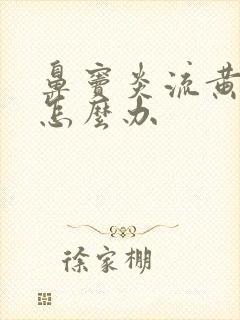 鼻窦炎流黄
怎麼办
徐家棚